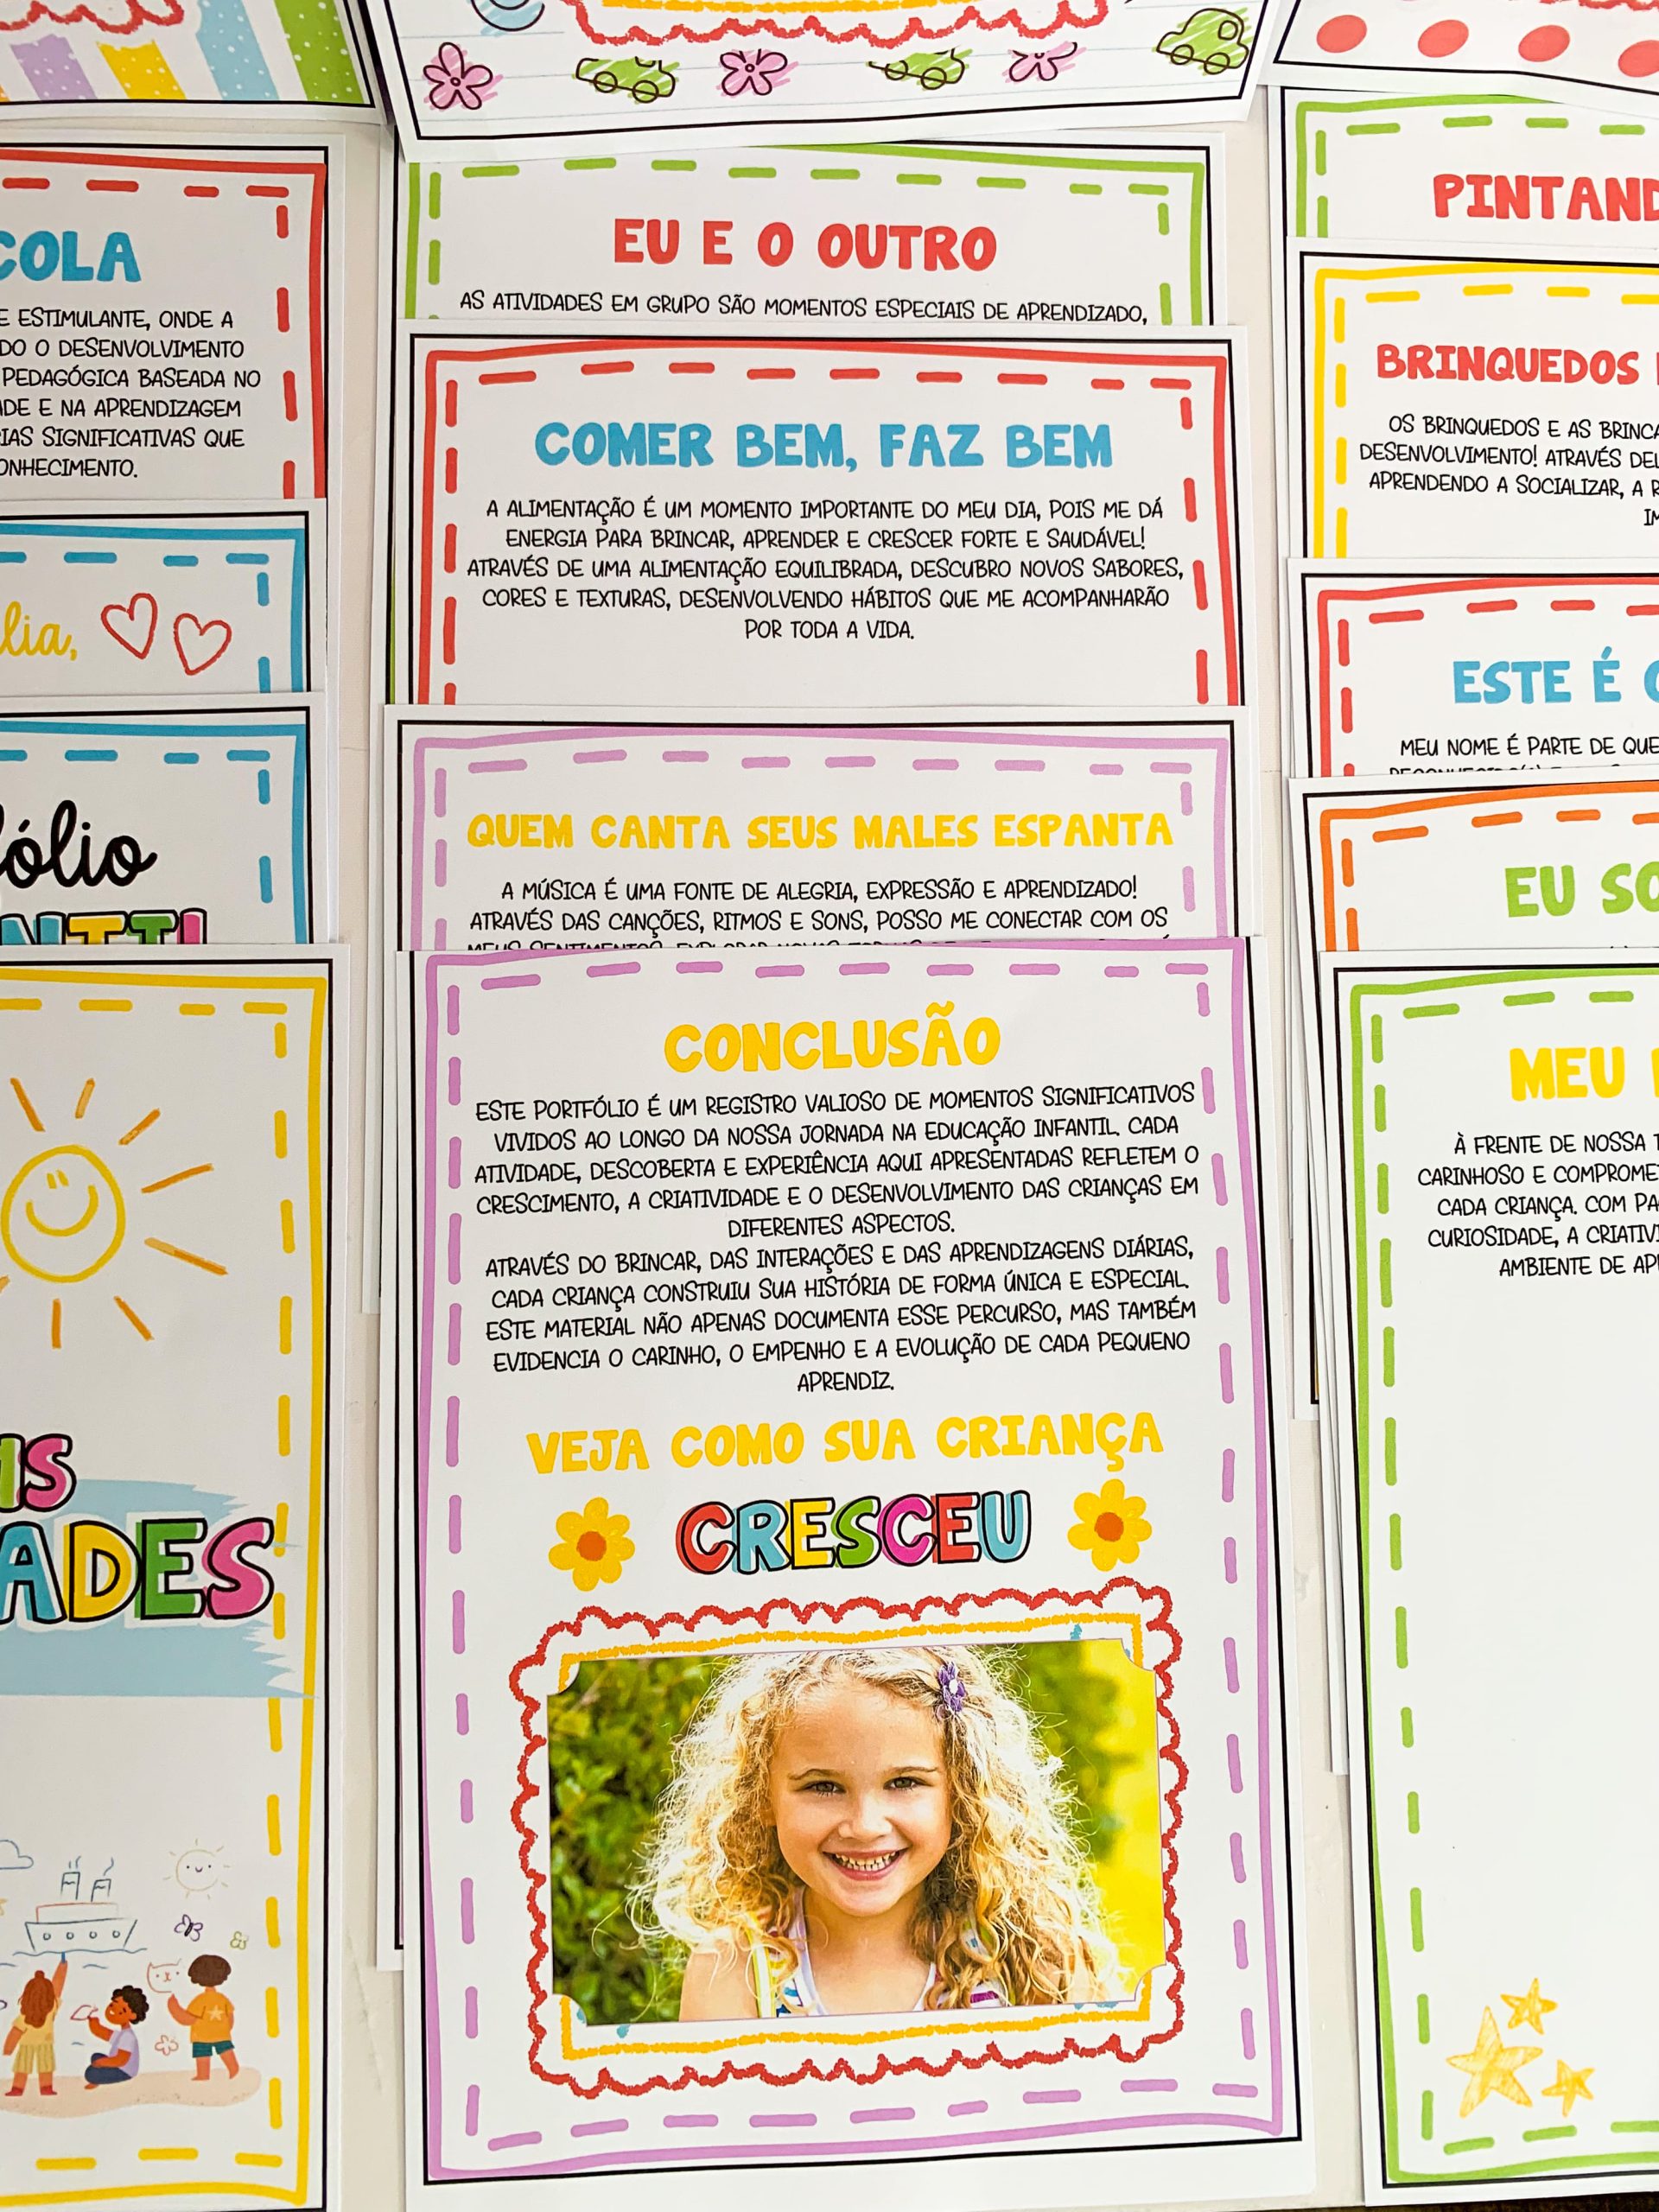 COLA
E ESTIMULANTE, ONDE A
DO O DESENVOLVIMENTO
PEDAGÓGICA BASEADA NO
ADE E NA APRENDIZAGEM
IAS SIGNIFICATIVAS QUE
ONHECIMENTO.
lia,
fólio
NTTI
IS
ADES
EU E O OUTRO
AS ATIVIDADES EM GRUPO SÃO MOMENTOS ESPECIAIS DE APRENDIZADO,
COMER BEM, FAZ BEM
A ALIMENTAÇÃO É UM MOMENTO IMPORTANTE DO MEU DIA, POIS ME DÁ
ENERGIA PARA BRINCAR, APRENDER E CRESCER FORTE E SAUDÁVEL!
ATRAVÉS DE UMA ALIMENTAÇÃO EQUILIBRADA, DESCUBRO NOVOS SABORES,
CORES E TEXTURAS, DESENVOLVENDO HÁBITOS QUE ME ACOMPANHARÃO
POR TODA A VIDA.
QUEM CANTA SEUS MALES ESPANTA
A MÚSICA É UMA FONTE DE ALEGRIA, EXPRESSÃO E APRENDIZADO!
ATRAVÉS DAS CANÇÕES, RITMOS E SONS, POSSO ME CONECTAR COM OS
MEUS SENTIMENTOS, EXPLORAR NOVAS FORMAS DE
CONCLUSÃO
ESTE PORTFÓLIO É UM REGISTRO VALIOSO DE MOMENTOS SIGNIFICATIVOS
VIVIDOS AO LONGO DA NOSSA JORNADA NA EDUCAÇÃO INFANTIL. CADA
ATIVIDADE, DESCOBERTA E EXPERIÊNCIA AQUI APRESENTADAS REFLETEM O
CRESCIMENTO, A CRIATIVIDADE E O DESENVOLVIMENTO DAS CRIANÇAS EM
DIFERENTES ASPECTOS.
ATRAVÉS DO BRINCAR, DAS INTERAÇÕES E DAS APRENDIZAGENS DIÁRIAS,
CADA CRIANÇA CONSTRUIU SUA HISTÓRIA DE FORMA ÚNICA E ESPECIAL.
ESTE MATERIAL NÃO APENAS DOCUMENTA ESSE PERCURSO, MAS TAMBÉM
EVIDENCIA O CARINHO, O EMPENHO E A EVOLUÇÃO DE CADA PEQUENO
APRENDIZ.
VEJA COMO SUA CRIANÇA
CRESCEU
PINTAND
BRINQUEDOS
OS BRINQUEDOS E AS BRINCA
DESENVOLVIMENTO! ATRAVÉS DEL
APRENDENDO A SOCIALIZAR, A R
IM
ESTE É O
MEU NOME É PARTE DE QUE
EU SO
MEU
À FRENTE DE NOSSA T
CARINHOSO E COMPROME
CADA CRIANÇA. COM PA
CURIOSIDADE, A CRIATIVI
AMBIENTE DE AP